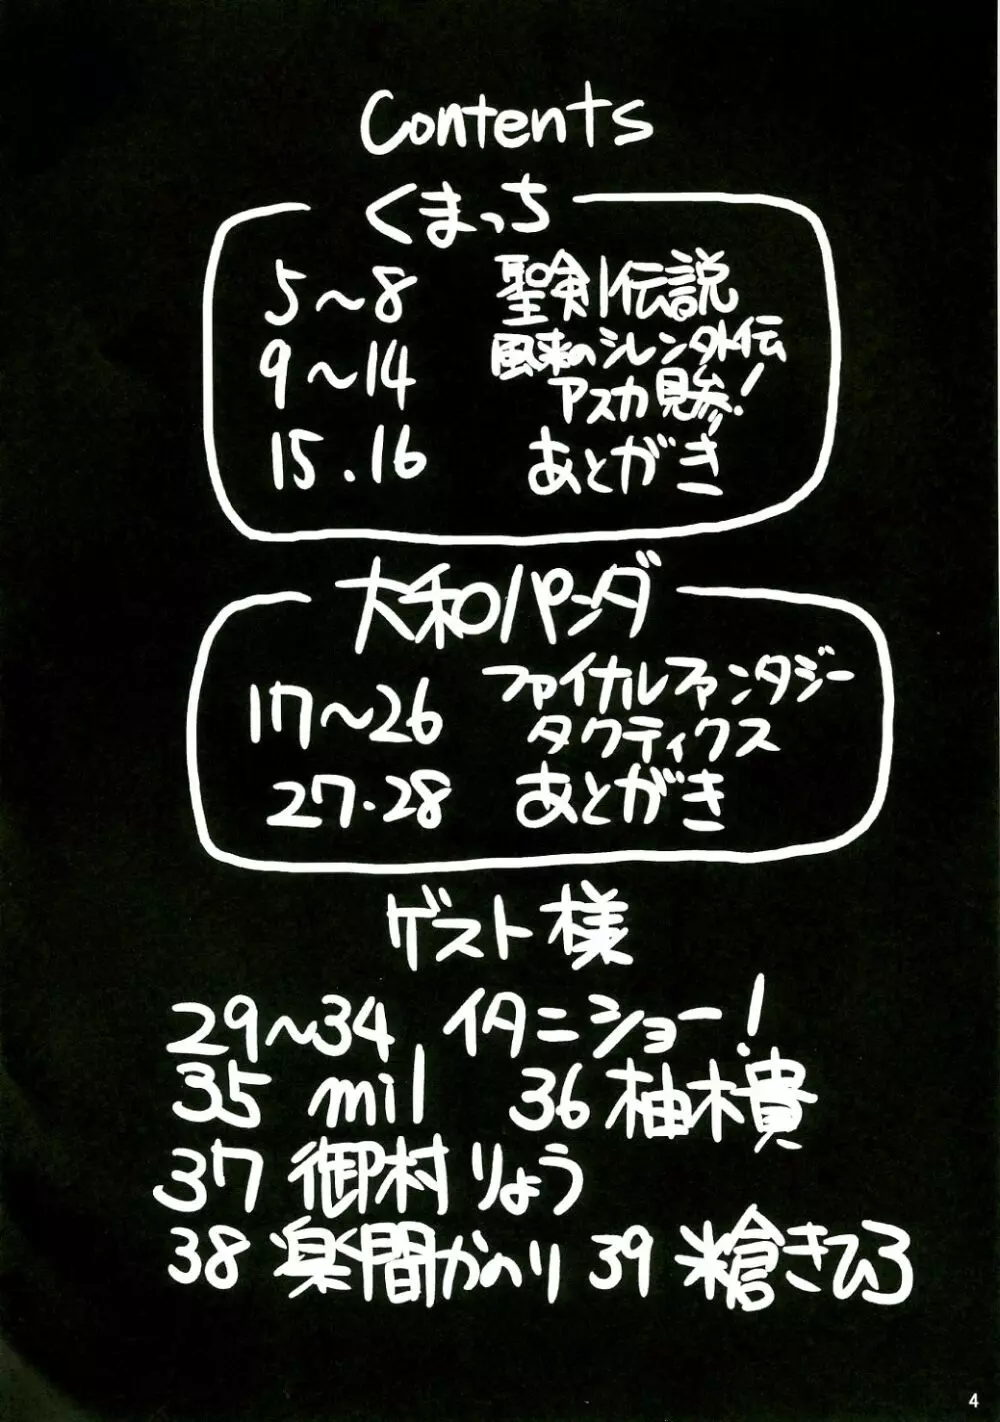 Contents
くまっち
5～8 聖剣伝説
9～14 風来のシレン外伝
アスカ見参!
15.16 あとがき
大和パンダ
17～26 ファイナルファンタジー
タクティクス
27・28 あとがき
ゲスト様
29～34 イタニショー!
35 mil 36 柚木貴
37 御村りょう
38 楽間かのり 39 米倉きひろ
4